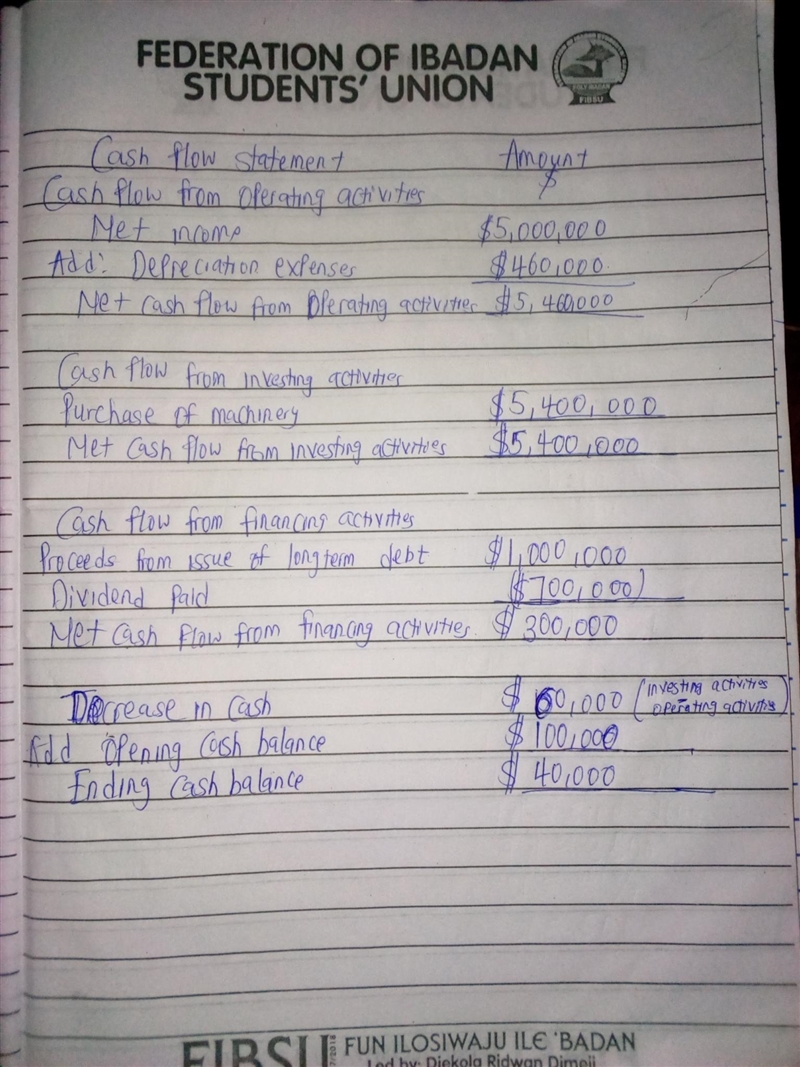 FEDERATION OF IBADAN
STUDENTS' UNION
FIBSU
Cash flow statement Amount
$
Cash flow from operating activities
Net income $5,000,000
Add: Depreciation expenses $460,000
Net cash flow from Operating activities $5,460,000
Cash flow from investing activities
Purchase of machinery $5,400,000
Net cash flow from investing activities $5,400,000
Cash flow from financing activities
Proceeds from issue of longterm debt $1,000,000
Dividend Paid ($700,000)
Net cash flow from financing activities. $300,000
Decrease in cash $60,000 (investing activities
- operating activities)
Add Opening cash balance $100,000
Ending cash balance $40,000
FIBSU FUN ILOSIWAJU ILE 'BADAN
Led by: Diekola Ridwan Dimeji